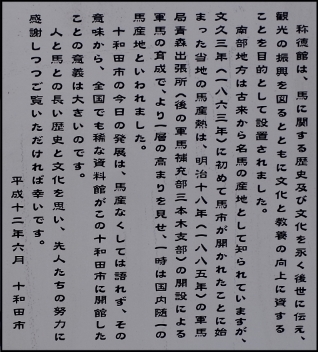 称徳館は、馬に関する歴史及び文化を永く後世に伝え、
観光の振興を図るとともに文化と教養の向上に資する
ことを目的として設置されました。
南部地方は古来から名馬の産地として知られていますが、
文久三年(一八六三年)に初めて馬市が開かれたことに始
まった当地の馬産熱は、明治十八年(一八八五年)の軍馬
局青森出張所(後の軍馬補充部三本木支部)の開設による
軍馬の育成で、より一層の高まりを見せ、一時は国内随一の
馬産地といわれました。
十和田市の今日の発展は、馬産なくしては語れず、その
意味から、全国でも稀な資料館がこの十和田市に開館した
ことの意義は大きいのです。
人と馬との長い歴史と文化を思い、先人たちの努力に
感謝しつつご覧いただければ幸いです。
平成十二年六月 十和田市